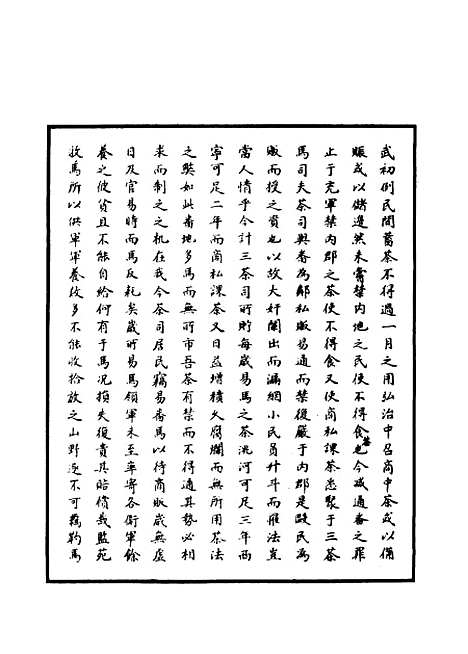 武初例民間蓄茶不得過一月之用弘治中召商中茶或以備
賑或以儲邊然未嘗禁内地之民使不得食茶也今減通番之罪
止于充軍禁内郡之茶使不得食又使商私課茶悉聚于三茶
馬司夫茶司與番為鄰私販易通而禁復嚴于内郡是敺民為
販而授之資也以故大奸闌出而漏網小民負升斗而罹法豈
當人情乎今計三茶司所貯每歲易馬之茶洮河可足三年西
寧可足二年而商私課茶又日益增積久腐爛而無所用茶法
之獘如此番地多馬而無所市吾茶有禁而不得通其勢必相
求而制之之机在我今茶司居民竊易番馬以待商販歲無虛
日及官易時而馬反耗矣歲所易馬領軍未至率寄各衛軍餘
養之彼貧且不能自給何有于馬况損失復責其賠償哉監苑
牧馬所以供軍軍養故多不能收拾放之山野遂不可羈靮馬